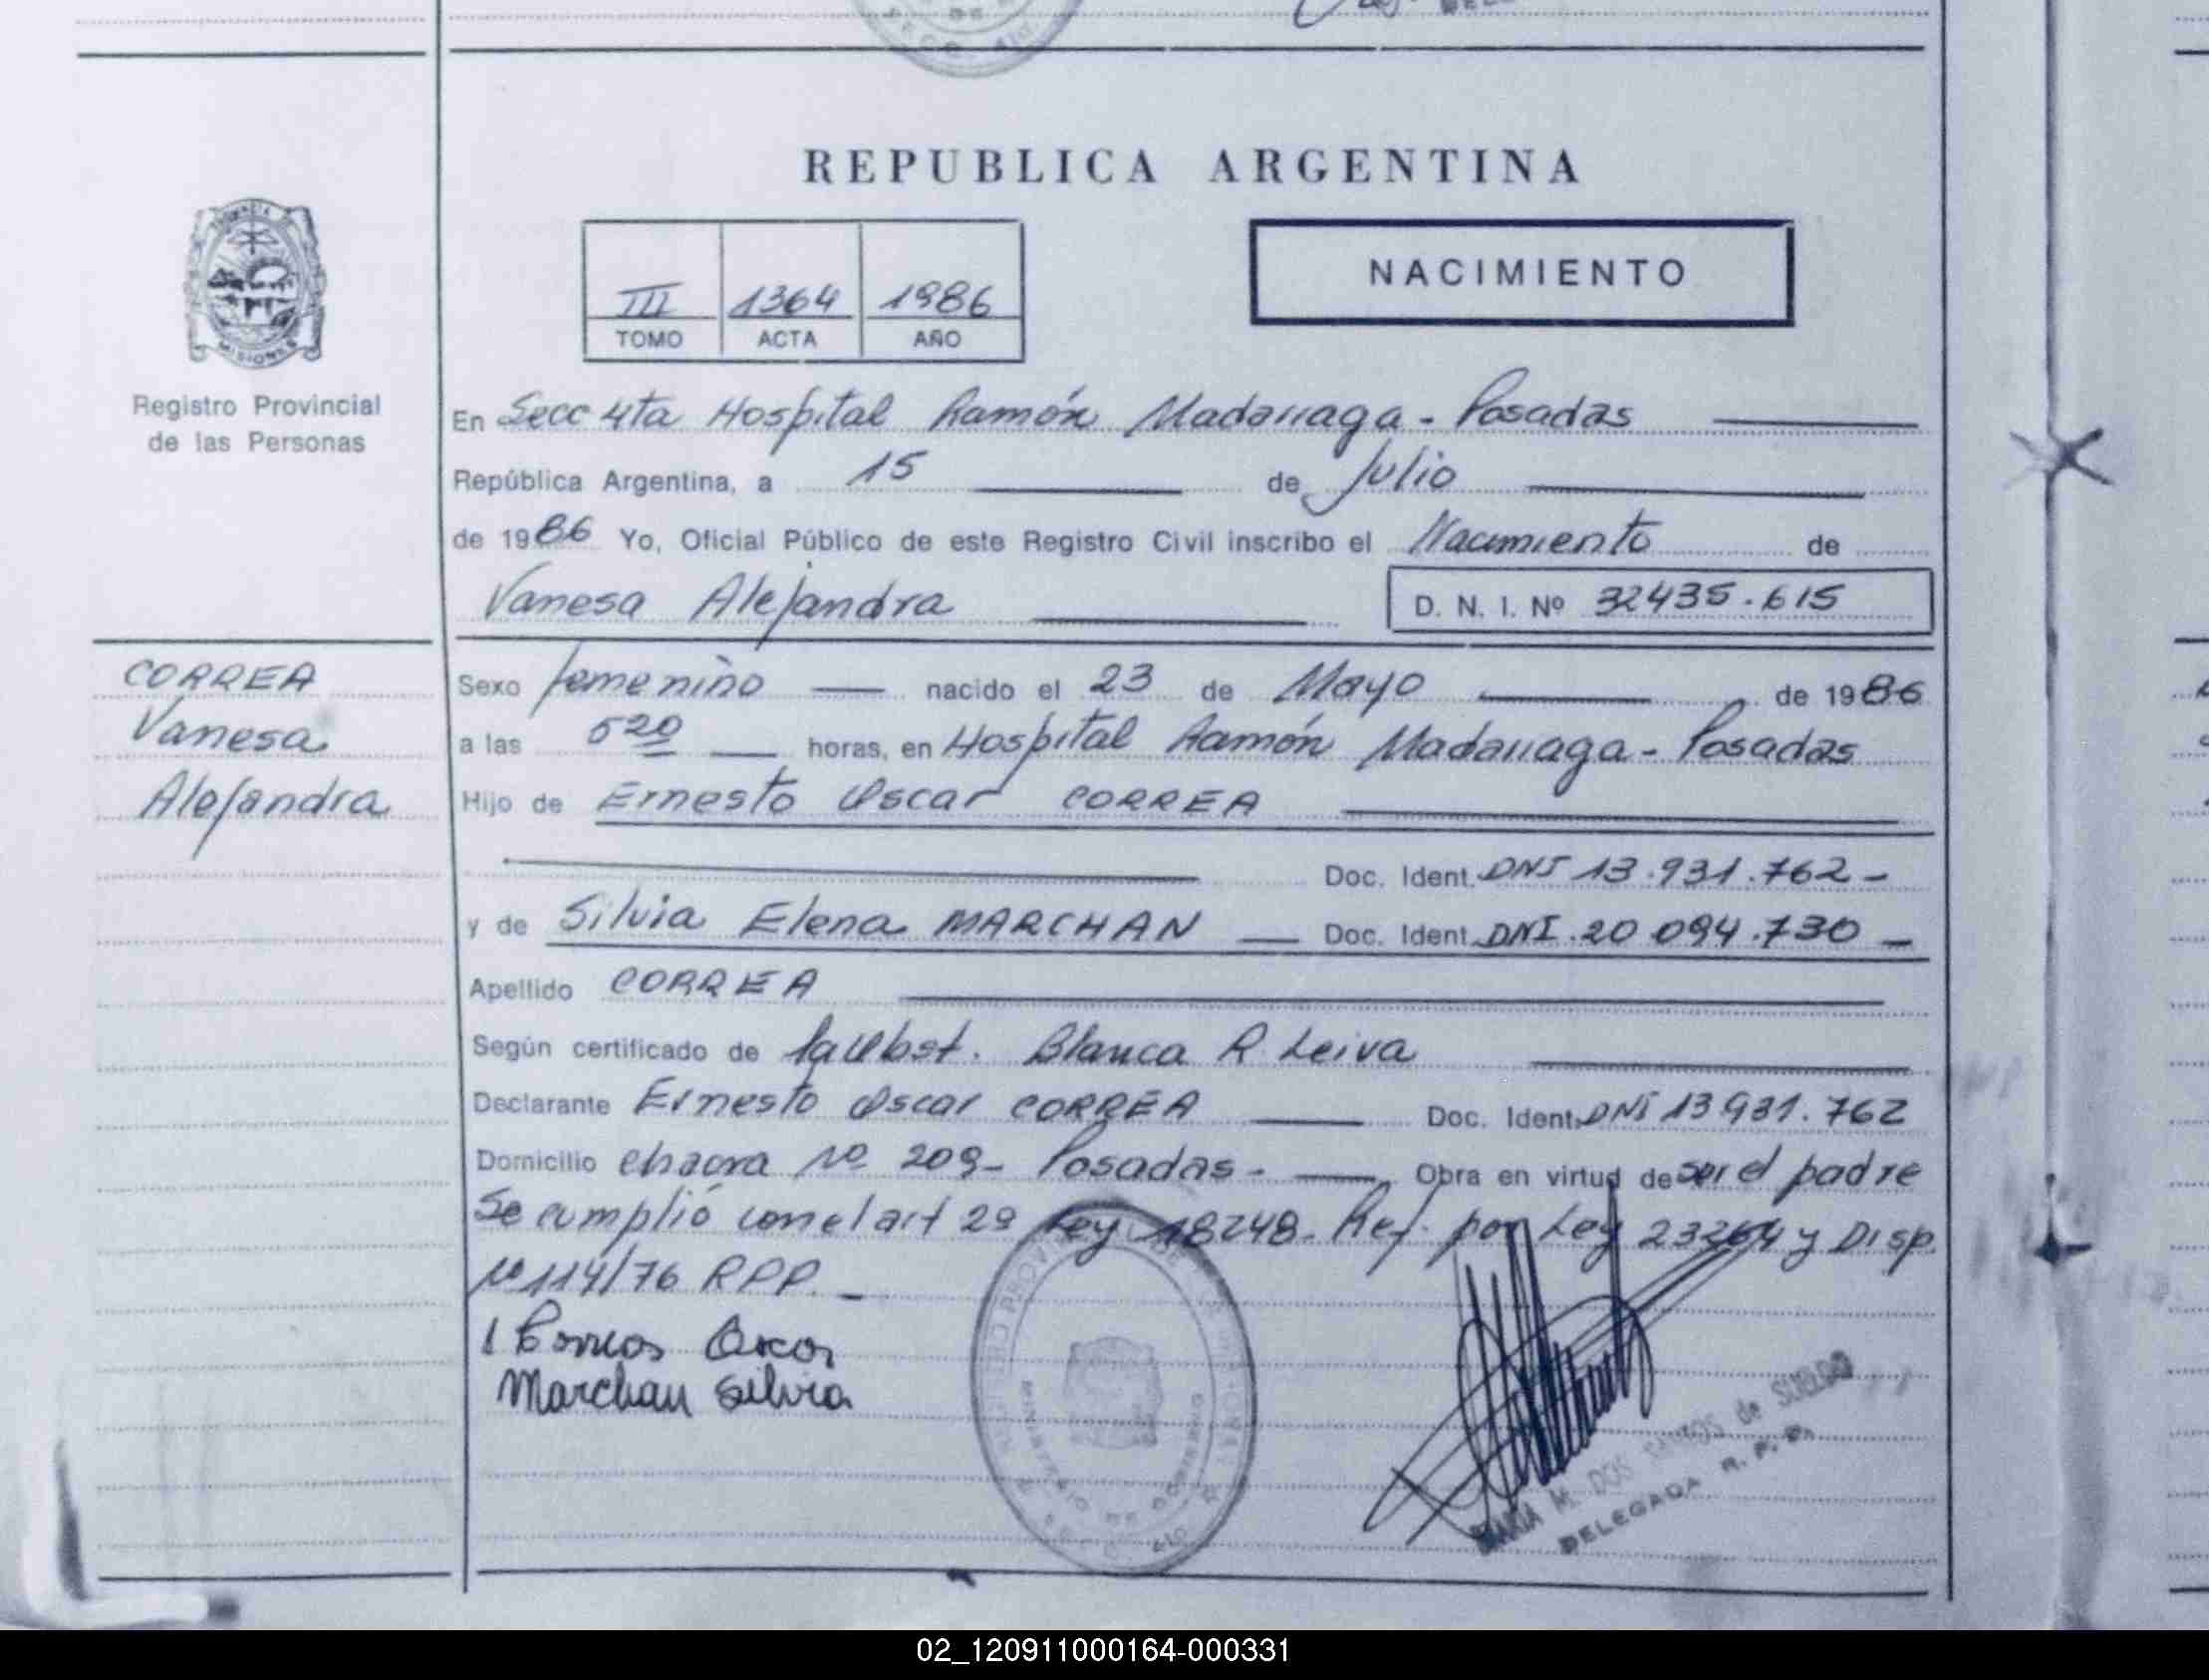 REPUBLICA ARGENTINA
III 1364 1986
TOMO ACTA AÑO
NACIMIENTO
MISIONES
Registro Provincial
de las Personas
En Secc 4ta Hospital Ramón Madariaga - Posadas
República Argentina, a 15 de Julio
de 1986 Yo, Oficial Público de este Registro Civil inscribo el Nacimiento de
Vanesa Alejandra D. N. I. Nº 32435.615
CORREA
Vanesa
Alejandra
Sexo femenino nacido el 23 de Mayo de 1986
a las 520 horas, en Hospital Ramón Madariaga - Posadas
Hijo de Ernesto Oscar CORREA
Doc. Ident. DNI 13.931.762 -
y de Silvia Elena MARCHAN Doc. Ident. DNI. 20 094.730 -
Apellido CORREA
Según certificado de la Obst. Blanca R. Leiva
Declarante Ernesto Oscar CORREA Doc. Ident. DNI 13931.762
Domicilio chacra Nº 209 - Posadas - Obra en virtud de ser el padre
Se cumplió con el art 2º Ley 18248. Ref. por Ley 23264 y Disp.
Nº 114/76 RPP. -
Oscar
Marchan Silvia
MARIA M. DOS SANTOS de SUELDO
DELEGADA R. P. P.
02_120911000164-000331